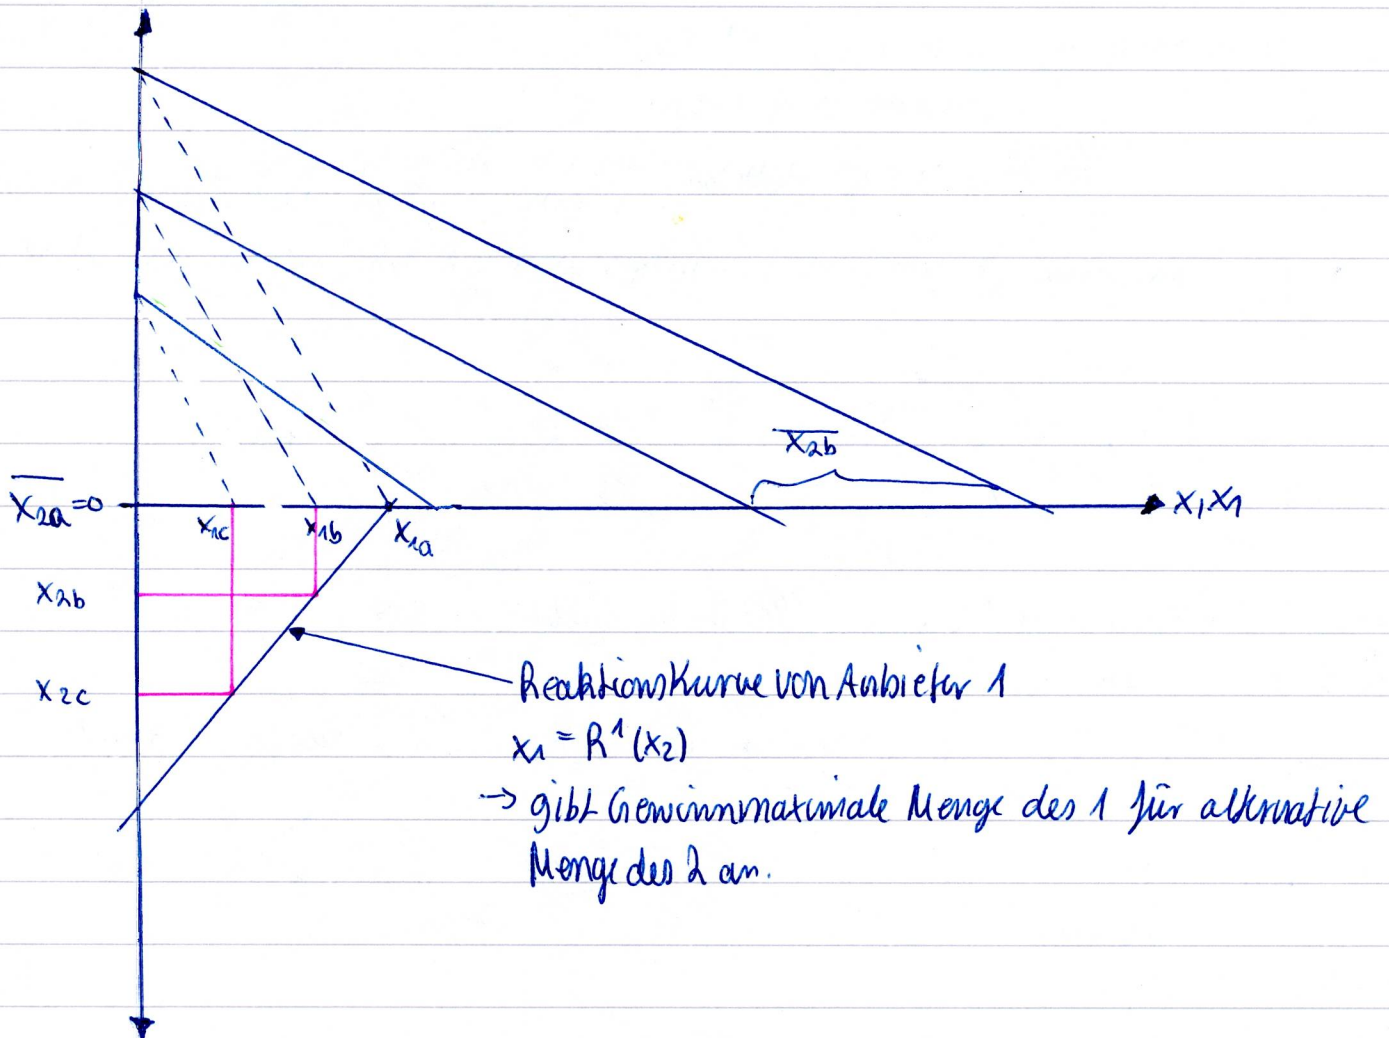 x̅2b
x̅2a=0
x1c
x1b
x1a
x1x1
x2b
x2c
Reaktionskurve von Anbieter 1
x1 = R¹(x2)
→ gibt Gewinnmaximale Menge des 1 für alternative
Menge des 2 an.